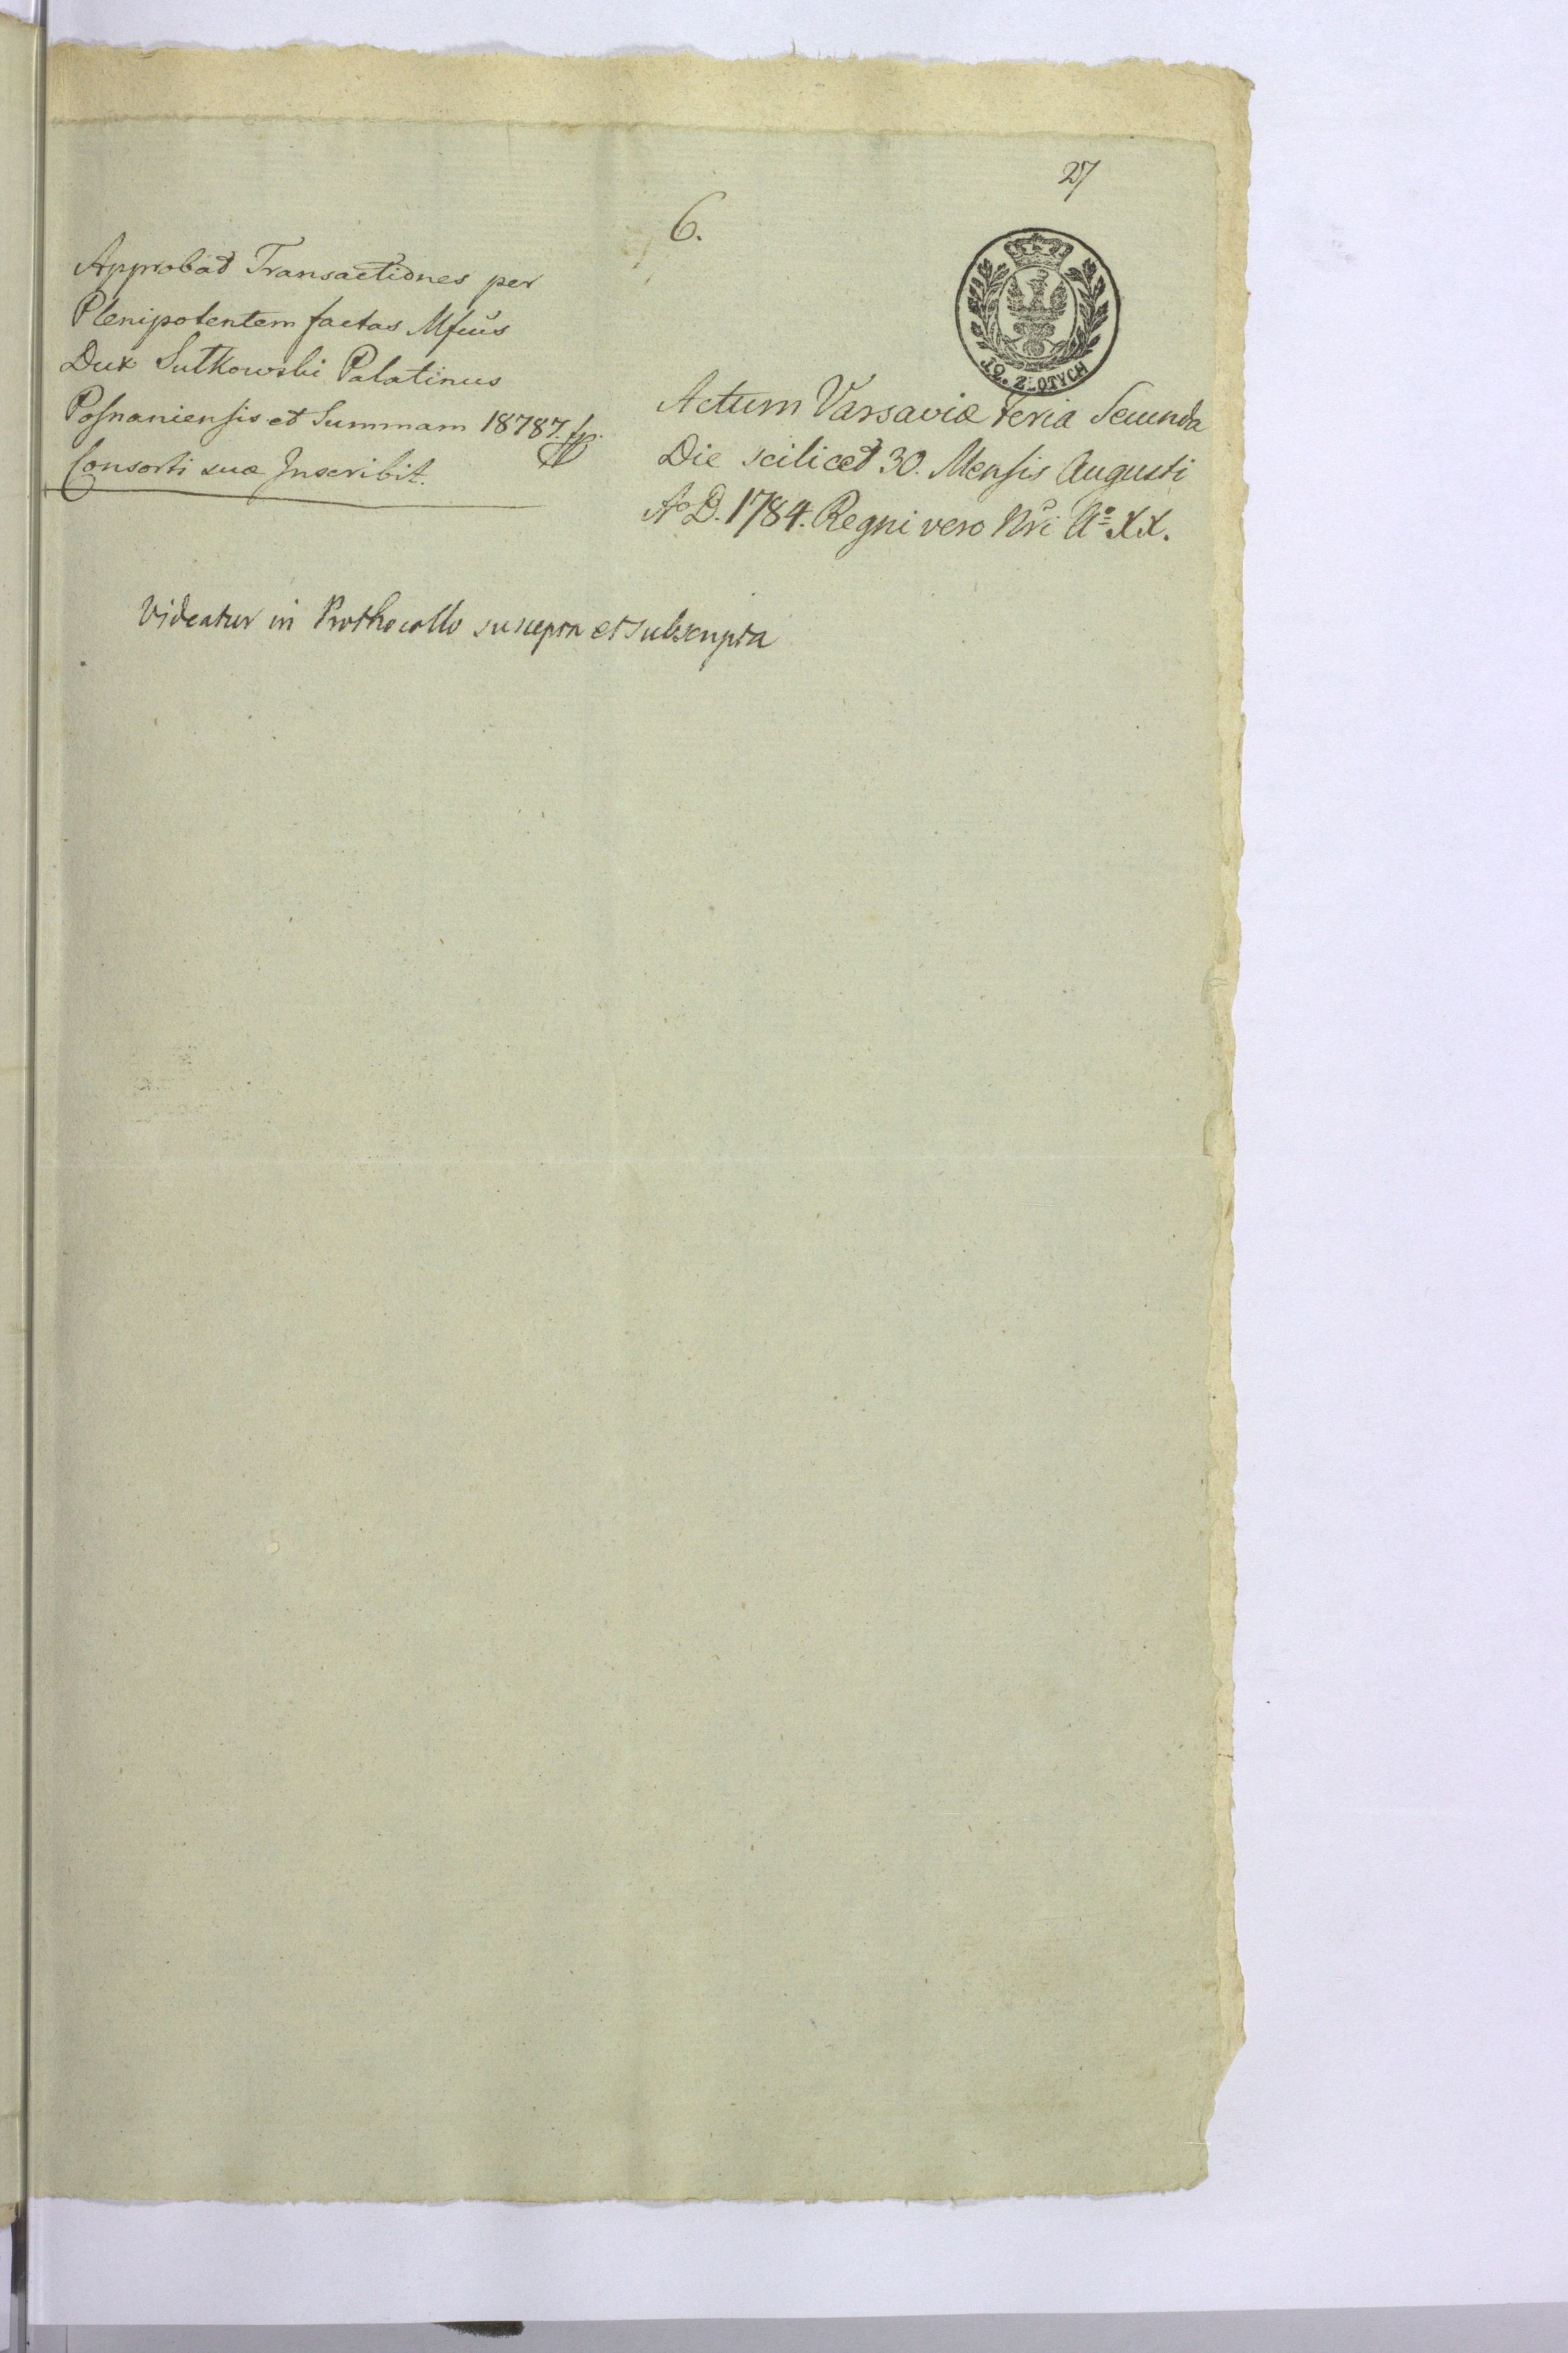 27
6.
10. ZŁOTYCH
Approbat Transactiones per
Plenipotentem factas Mfcus
Dux Sulkowski Palatinus
Posnaniensis et Summam 18787.
Consorti suæ Inscribit.
Actum Varsaviæ Feria Secunda
Die scilicet 30. Mensis Augusti
Aº D. 1784. Regni vero Nri Aº XX.
Videatur in Prothocollo suscepta et subscripta